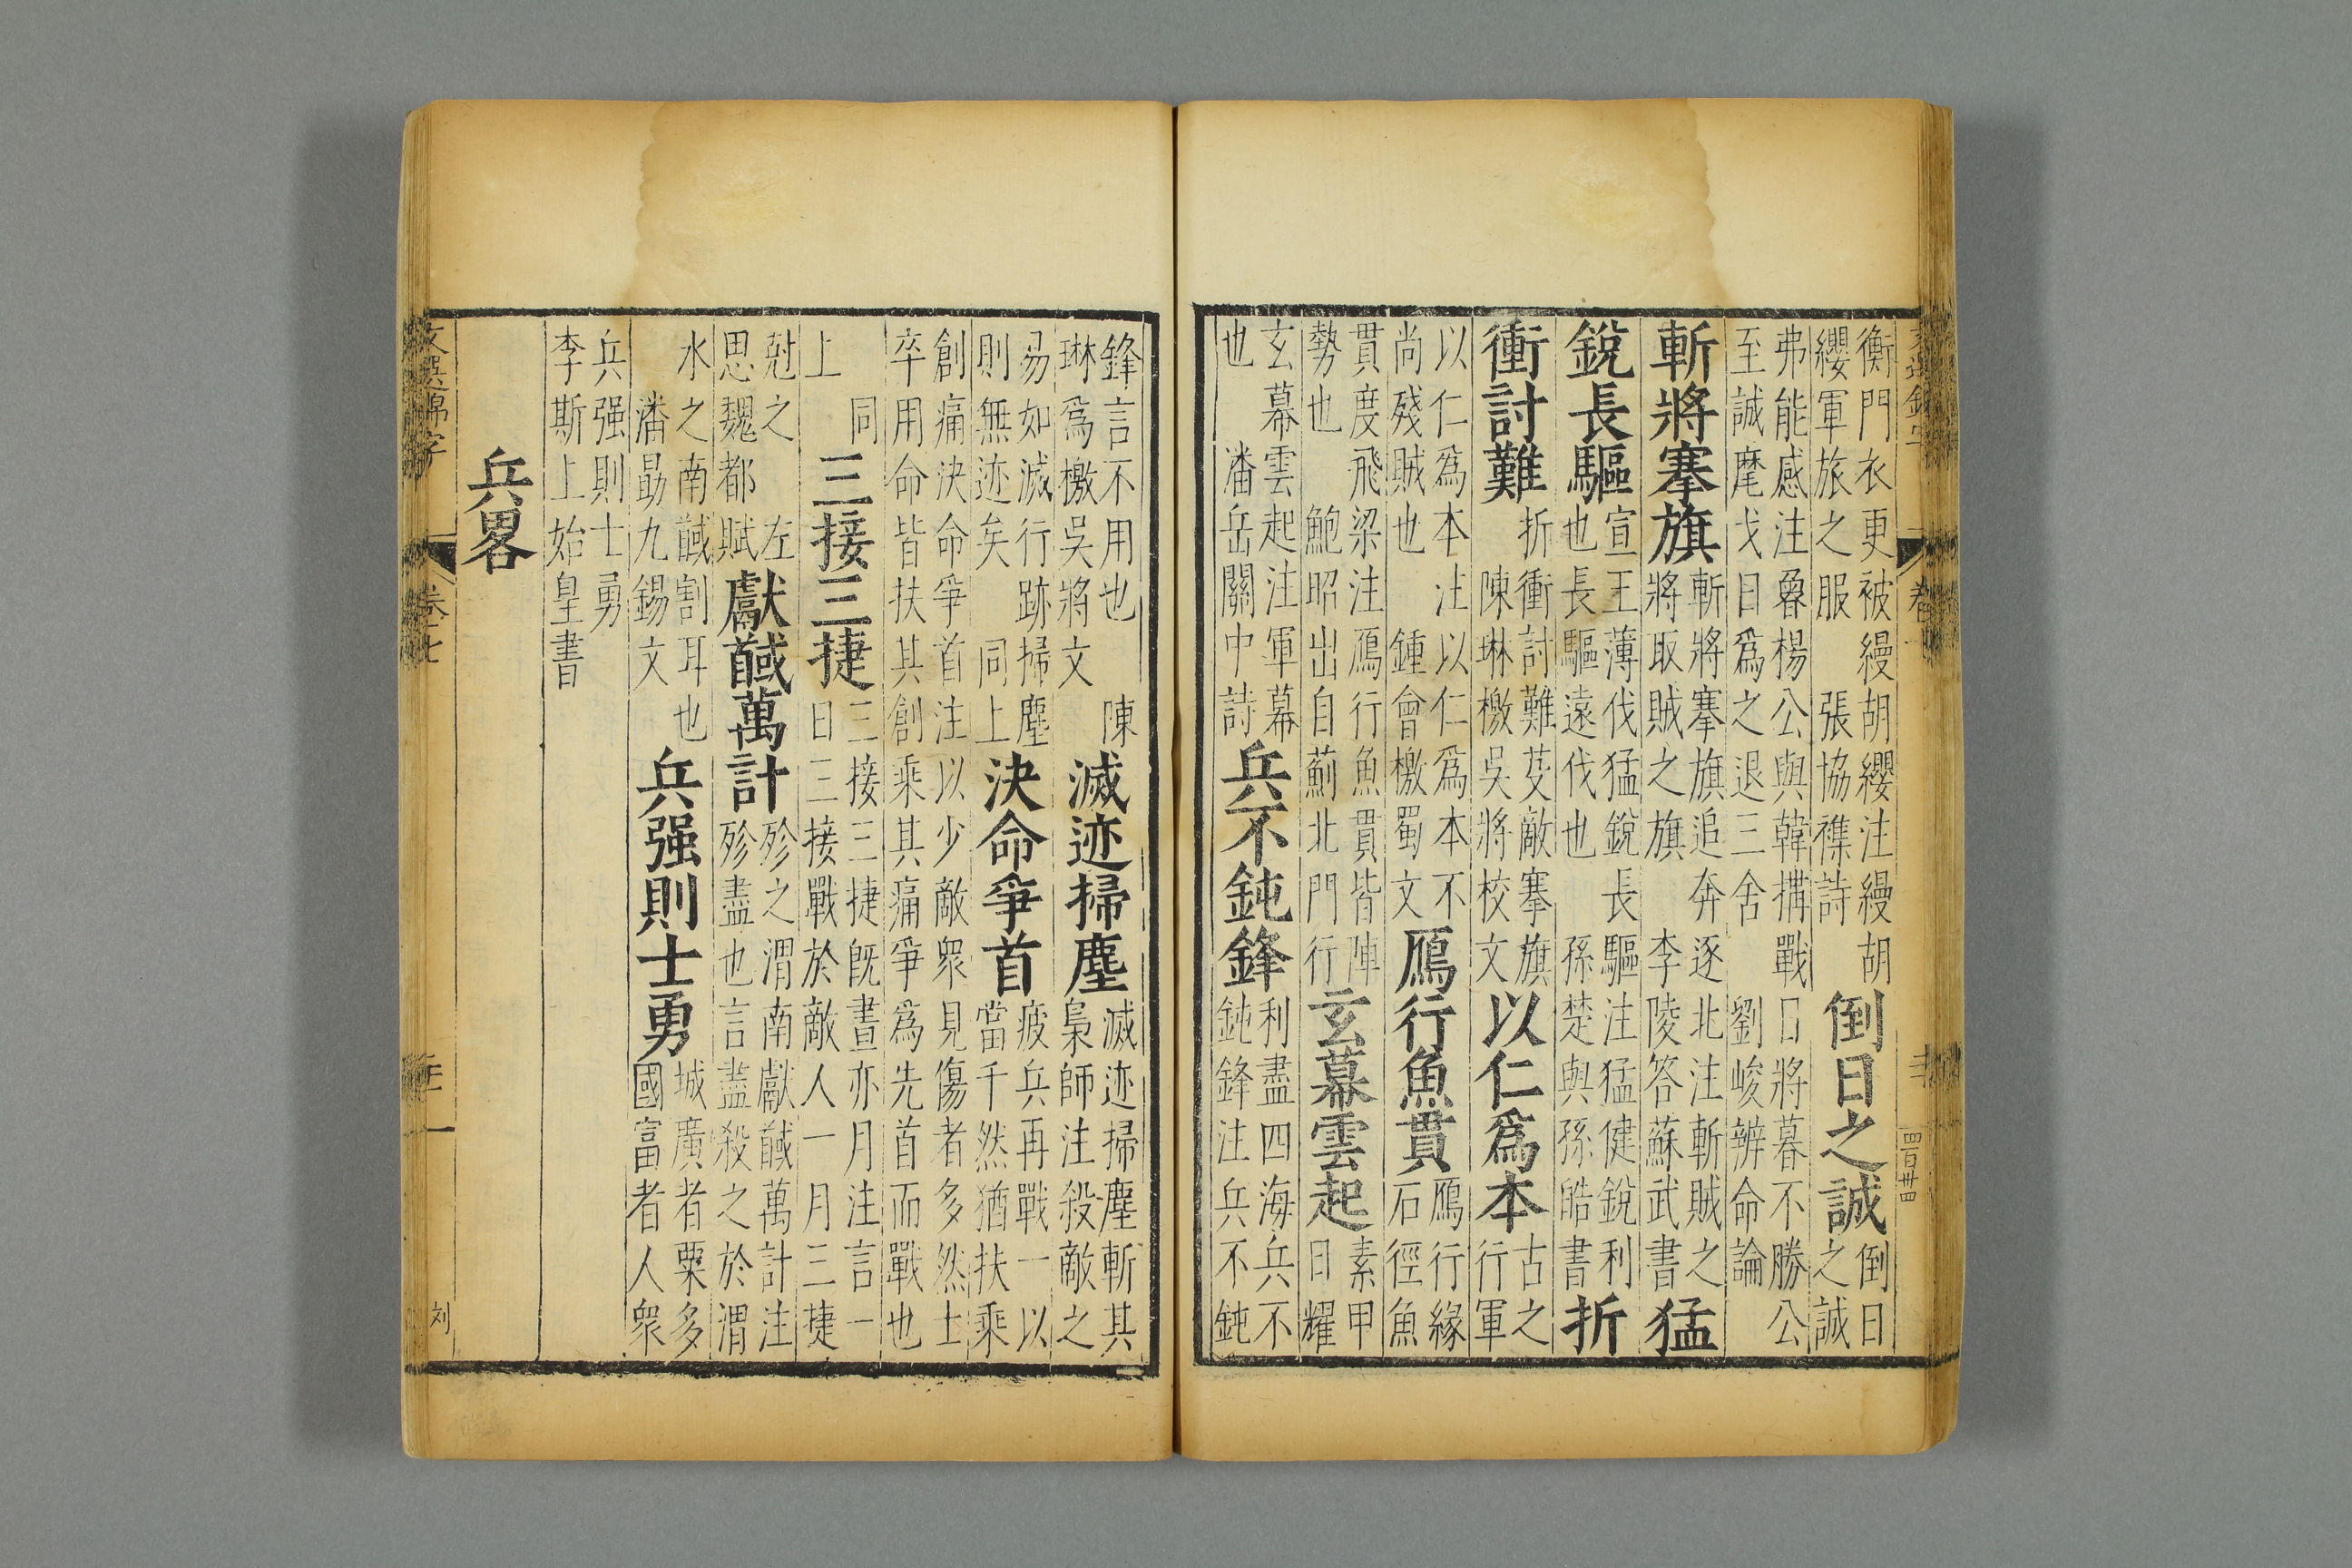 衡門衣更被縵胡纓注縵胡
纓軍旅之服 張協襍詩
倒日之誠
倒日
之誠
弗能感注魯楊公與韓搆戰日將暮不勝公
至誠麾戈日爲之退三舍 劉峻辨命論
斬將搴旗
斬將搴旗追奔逐北注斬賊之
將取賊之旗 李陵答蘇武書
猛
銳長驅
宣王薄伐猛銳長驅注猛健銳利
也長驅遠伐也 孫楚與孫皓書
折
衝討難
折衝討難芟敵搴旗
陳琳檄吳將校文
以仁爲本
古之
行軍
以仁爲本注以仁爲本不
尚殘賊也 鍾會檄蜀文
鴈行魚貫
鴈行緣
石徑魚
貫度飛梁注鴈行魚貫皆陣
勢也 鮑昭出自薊北門行
玄幕雲起
素甲
日耀
玄幕雲起注軍幕
也 潘岳關中詩
兵不鈍鋒
利盡四海兵不
鈍鋒注兵不鈍
鋒言不用也 陳
琳爲檄吳將文
滅迹掃塵
滅迹掃塵斬其
梟師注殺敵之
易如滅行跡掃塵
則無迹矣 同上
決命爭首
疲兵再戰一以
當千然猶扶乘
創痛決命爭首注以少敵衆見傷者多然士
卒用命皆扶其創乘其痛爭爲先首而戰也
同
上
三接三捷
三接三捷旣晝亦月注言一
日三接戰於敵人一月三捷
尅之 左
思魏都賦
獻馘萬計
殄之渭南獻馘萬計注
殄盡也言盡殺之於渭
水之南馘割耳也
潘勗九錫文
兵强則士勇
城廣者粟多
國富者人衆
兵强則士勇
李斯上始皇書
兵畧
文選錦字
卷七
刘